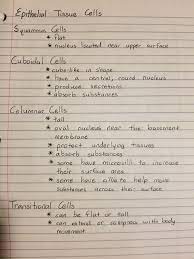 Epithelial Tissue Cells
Squamous Cells
* flat
* nucleus located near upper surface
Cuboidal Cells
* cube-like in shape
* have a central, round nucleus
* produce secretions
* absorb substances
Columnar Cells
* tall
* oval nucleus near the basement
membrane
* protect underlying tissues
* absorb substances
* some have microvilli to increase
their surface area
* some have cilia to help move
substances across their surface
Transitional Cells
* can be flat or tall
* can extend or compress with body
movement